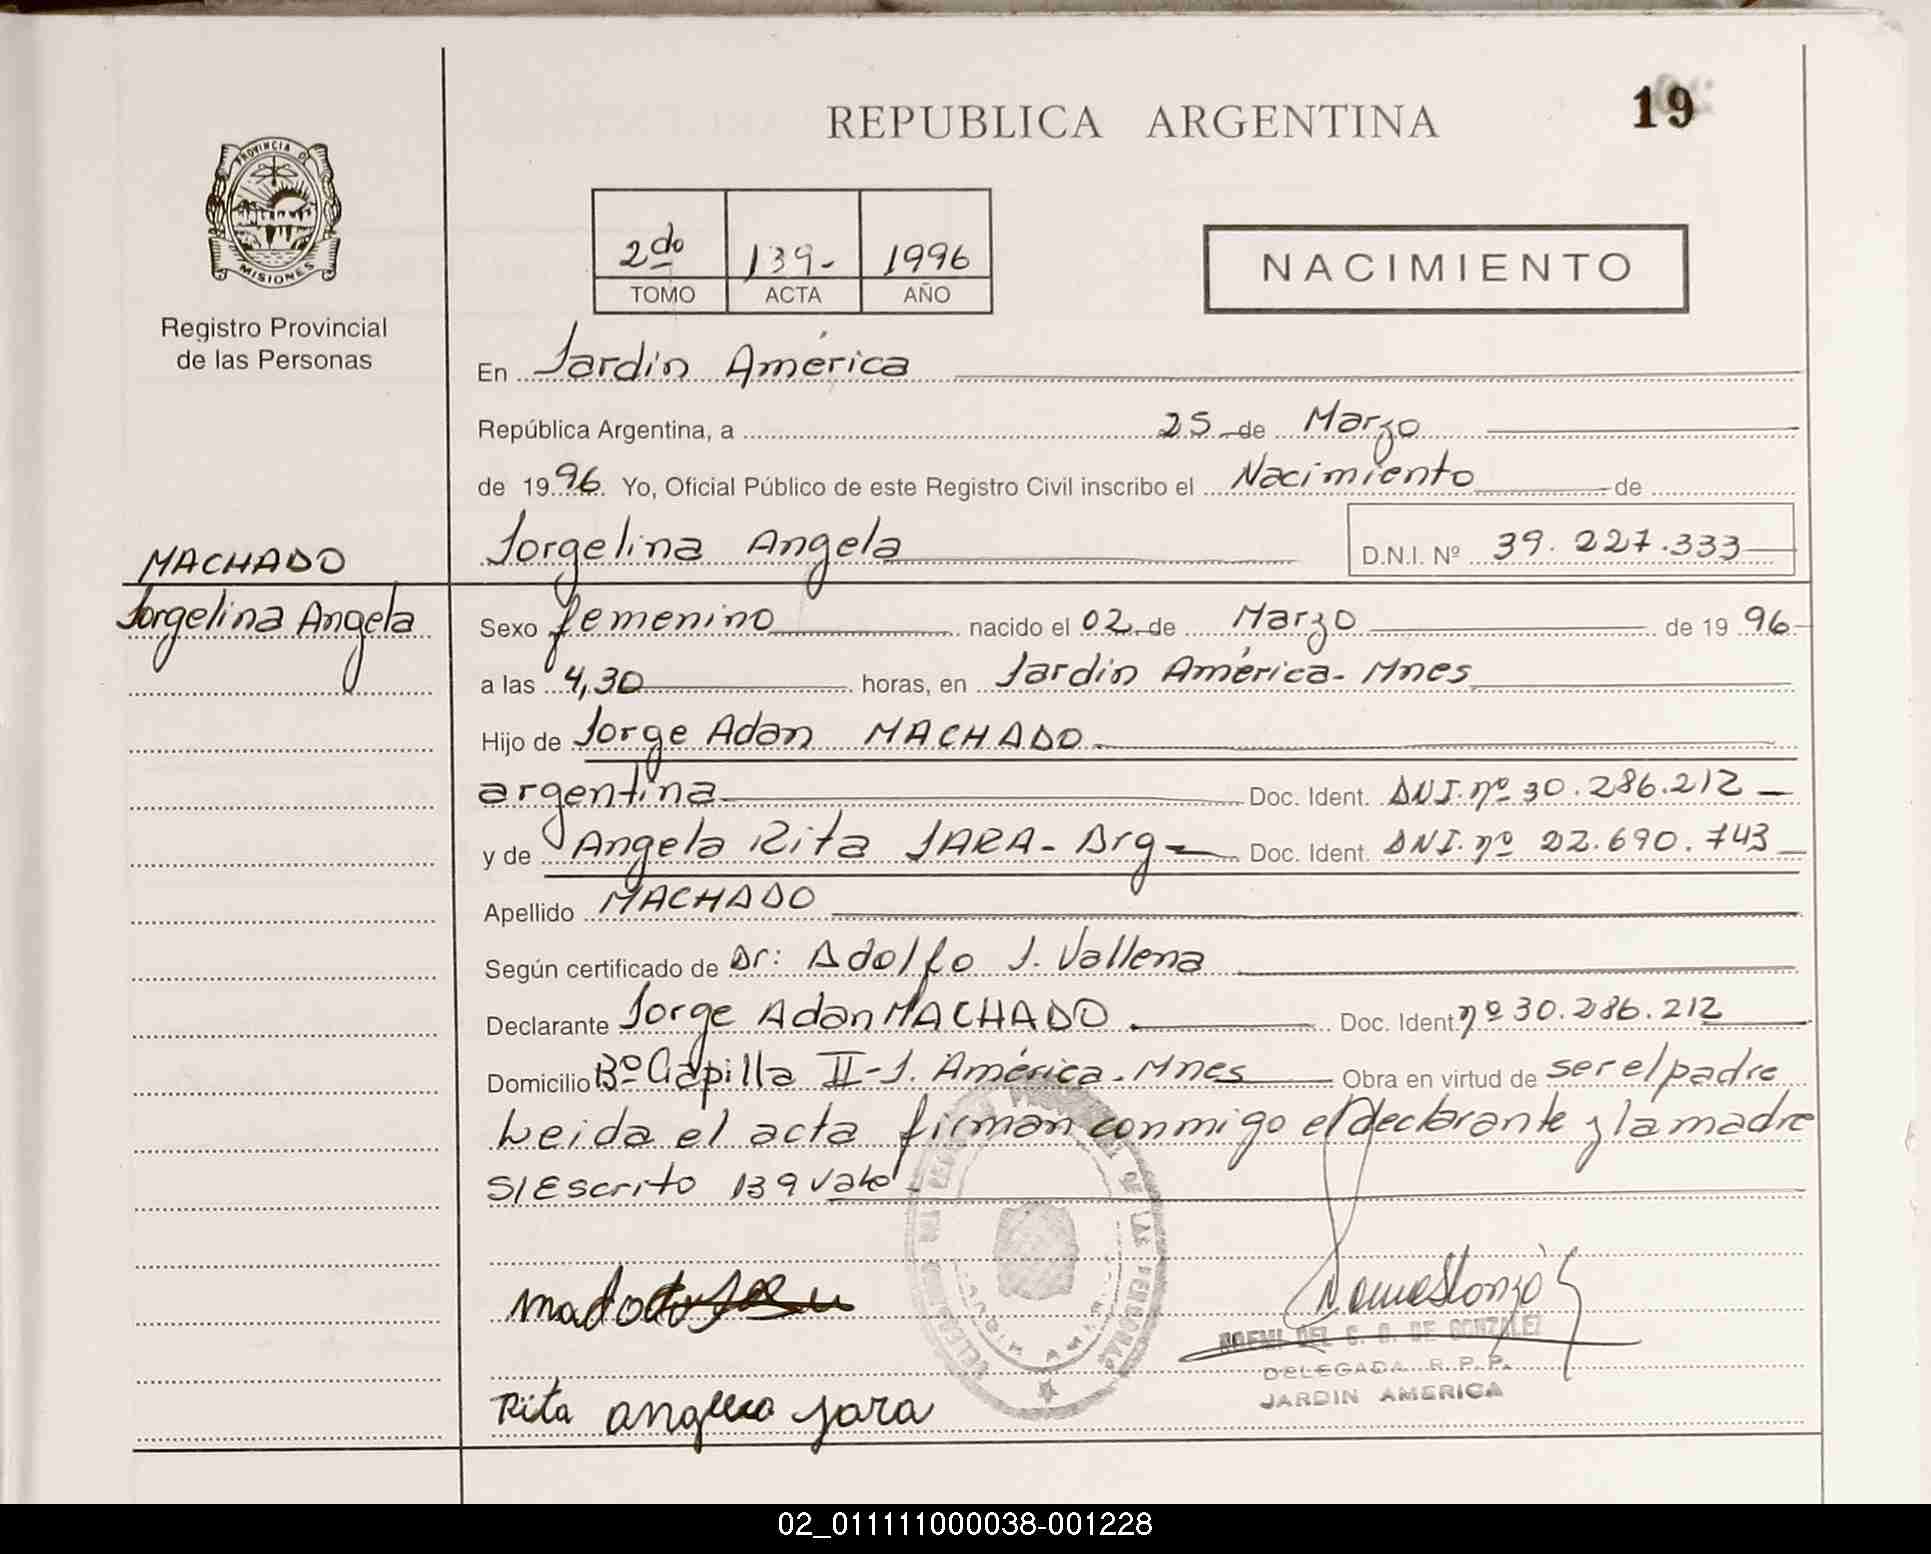 REPUBLICA ARGENTINA
19
PROVINCIA DE
MISIONES
Registro Provincial
de las Personas
2do 139- 1996
TOMO ACTA AÑO
NACIMIENTO
En Jardin América
República Argentina, a 25 de Marzo
de 1996. Yo, Oficial Público de este Registro Civil inscribo el Nacimiento de
Jorgelina Angela D.N.I. Nº 39.227.333
MACHADO
Jorgelina Angela
Sexo femenino nacido el 02 de Marzo de 1996
a las 4,30 horas, en Jardin América-Mnes
Hijo de Jorge Adan MACHADO
argentina Doc. Ident. DNI.nº 30.286.212
y de Angela Rita JARA-Arg Doc. Ident. DNI.nº 22.690.743
Apellido MACHADO
Según certificado de Dr: Adolfo J. Vallena
Declarante Jorge Adan MACHADO Doc. Ident. nº 30.286.212
Domicilio Bº Capilla II-J. América-Mnes Obra en virtud de ser el padre
Leida el acta firman conmigo el declarante y la madre
S/Escrito 139 vale
NOEMI DEL C. G. DE GONZALEZ
DELEGADA R.P.P.
JARDIN AMERICA
Rita angela jara
02_011111000038-001228